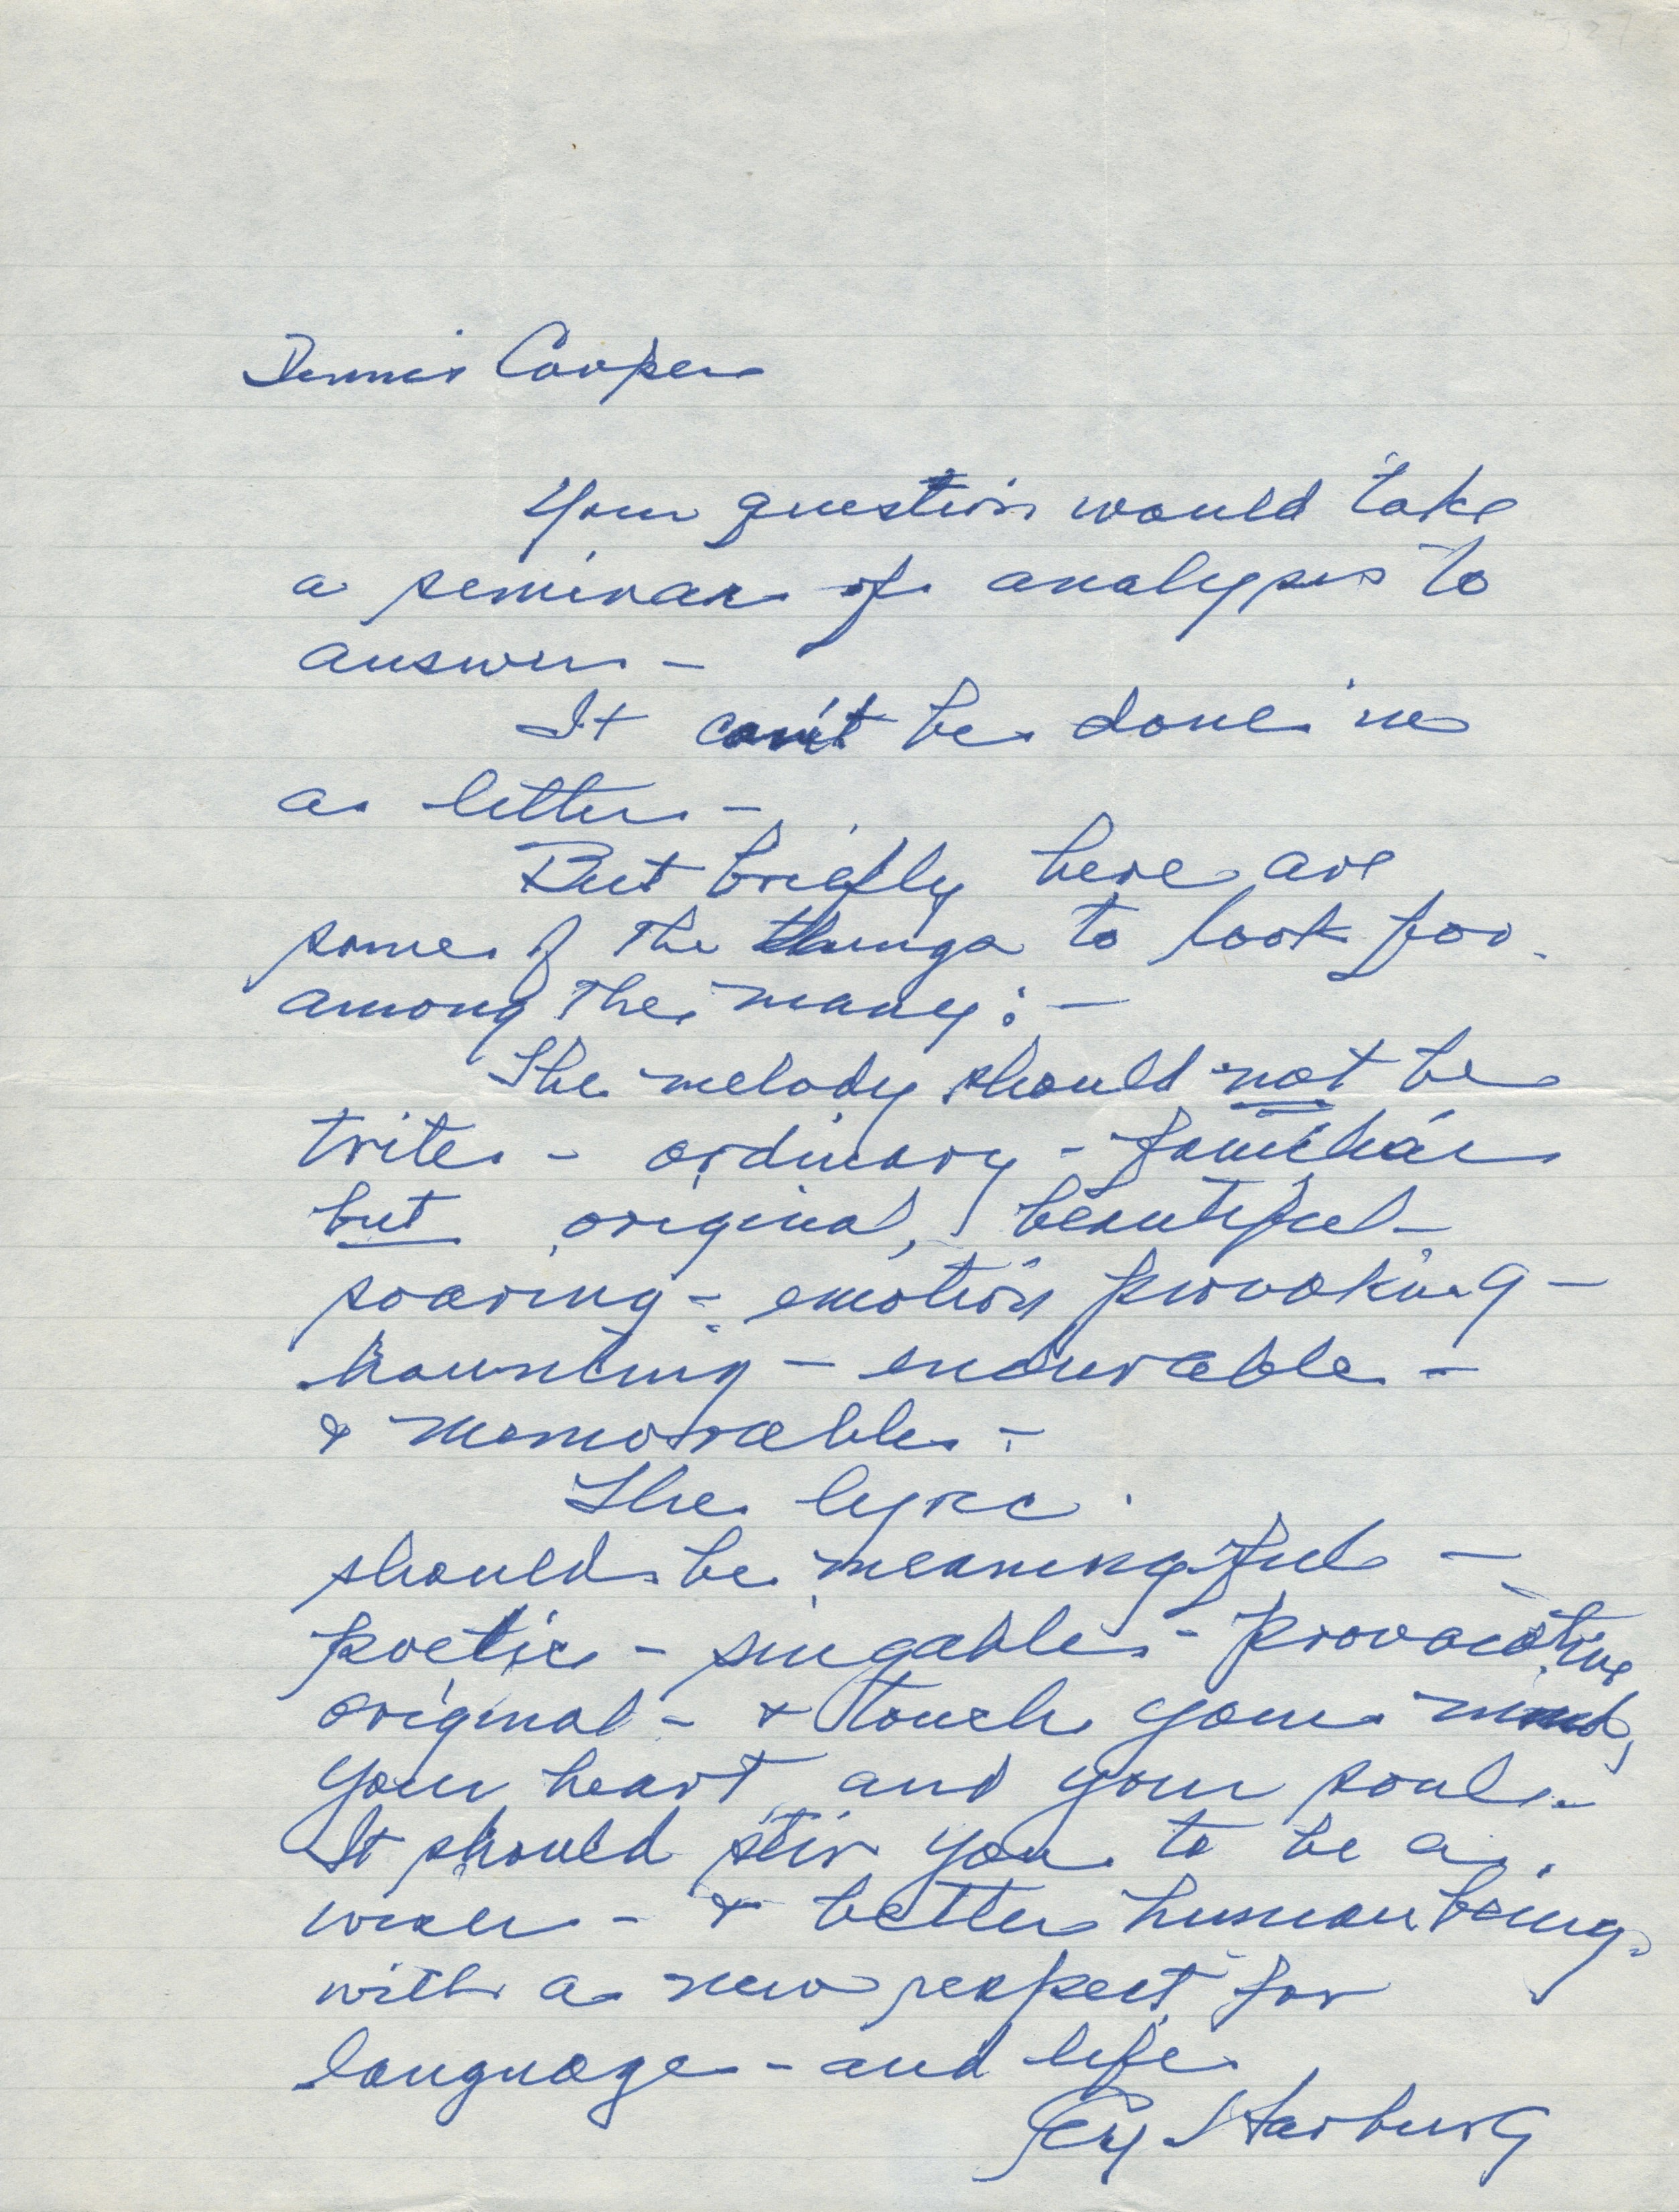 Dennis Cooper
Your question would take
a seminar of analysis to
answer -
It can't be done in
a letter -
But briefly here are
some of the things to look for
among the many : -
The melody should not be
trite - ordinary - familiar
but original, beautiful
soaring - emotion provoking -
haunting - endurable -
& memorable -
The lyric
should be meaningful -
poetic - singable - provocative
original - & touch your mind,
your heart and your soul.
It should stir you to be a
wiser - & better human being
with a new respect for
language - and life
Harburg